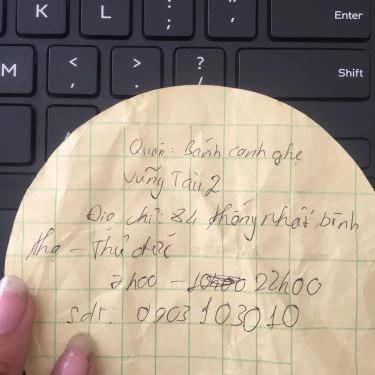 K
L
:
;
"
,
Enter
M
<
,
>
.
?
/
Shift
Quán: Bánh canh ghẹ
Vũng Tàu 2
Địa chỉ: 84 thống nhất, bình
thọ - Thủ đức
7h00 - 22h00
sdt: 0903 103010